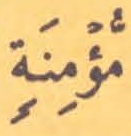 مُّؤْمِنَةٍ